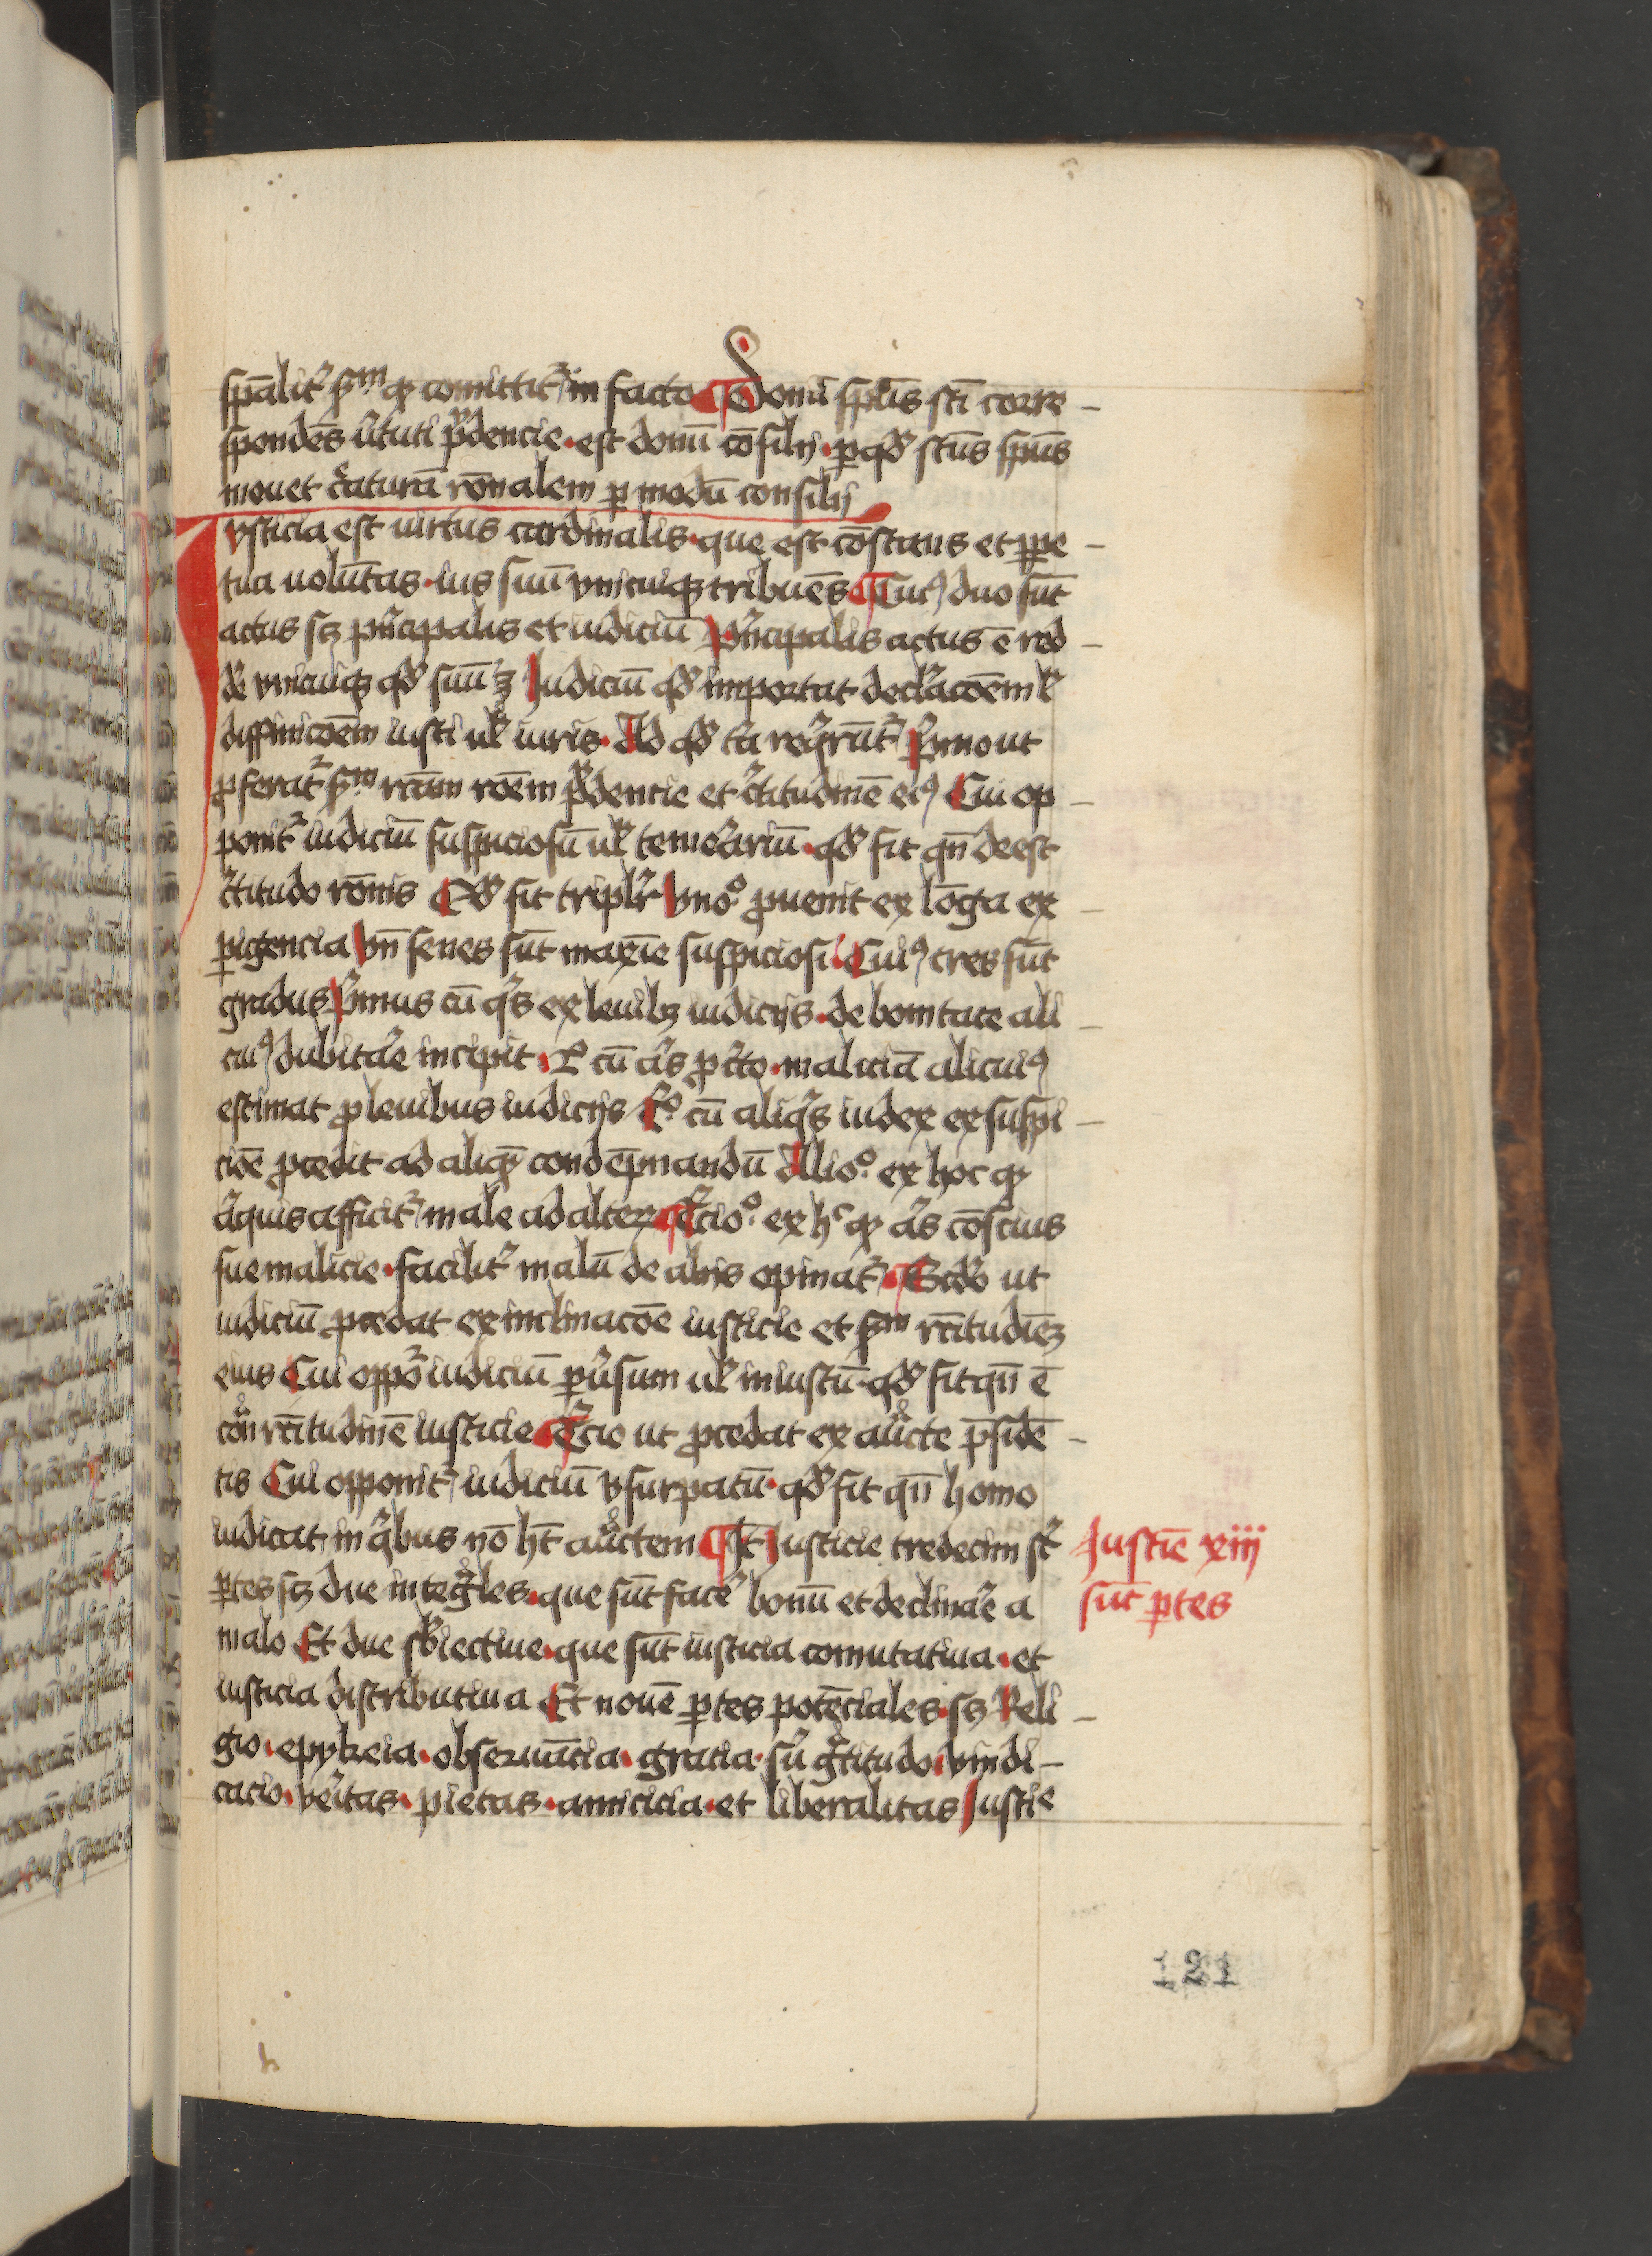 spālit᷑ sᵐ ꝙ comittit᷑ in facto Donū spūs sc̄i corre-
spondēs v̓tuti prudencie · est donū cōsilij · ꝑ qd̓ sc̄tus spūs
mouet c̓aturā rōnalem ꝑ modū consilij
Iusticia est uirtus cardinalis · que est cōstans et ꝑpe-
tua volūtas · ius suū vnicuiqꝫ tribuēs Cuiꝰ duo sūt
actus sꝫ pͥncipalis et iudiciū Pͥncipalis actus ē red-
de᷑ vnicuiqꝫ qd̓ suū ē Iudiciū qd̓ importat declaracōem ul̓
diffinicōem iusti ul̓ iuris · Ad qd̓ tͥa reqͥrunt᷑ Pͥmo ut
ꝓferat᷑ sᵐ rc̄am rōem prudencie et c̓titudinē eiꝰ Cui op-
ponit᷑ iudiciū suspiciosū ul̓ teme᷑ariū · qd̓ fit qn̄ deest
c̓titudo rōnis Qd̓ fit triplr̓ vnoº ꝓuenit ex lōga ex-
ꝑigencia vn̄ senes sūt maxīe suspiciosi · Cuiꝰ tres sūt
gradus Pͥmus cū qͥs ex leuibꝫ iudicijs · de bonitate ali-
cuiꝰ dubita᷑e incipit · 2º cū aͥs ꝓ c̓to · maliciā alicuiꝰ
estimat ꝓ leuibus iudicijs 3º cū aliqͥs iudex ex suspi-
ciōe ꝓcedit ad aliqͥ condēpnandū Alioº ex hoc ꝙ
aͥquis afficit᷑ male ad alterꝫ T᷑cioº ex hᶜ ꝙ aͥs cōscius
sue malicie · facilit᷑ malū de alijs opinat᷑ · Scd̓o ut
iudiciū ꝓcedat ex inclinacōe iusticie et sᵐ rc̄itudīeꝫ
eius Cui oppoͥ iudiciū ꝑu᷑sum ul̓ iniustū · qd̓ fit qn̄ ē
cōͣ rc̄itudinē iusticie T᷑cio ut ꝓcedat ex auͨcte p̄sidē-
tis Cui opponit᷑ iudiciū vsurpatū · qd̓ fit qn̄ homo
iudicat in qͥbus nō ht̄ auͨctem It̄ Iusticie tredecim st᷑
ꝑtes sꝫ due integͣles · que sūt face᷑ bonū et declina᷑e a
malo Et due sb̓iectiue · que sūt iusticia comutatiua · et
iusticia distributiua Et nouē ꝑtes potēciales · sꝫ Reli-
gio · epykeia · obseruātia · gratia · su᷑ gͣtitudo · vindi-
cacio · ve᷑itas · pietas · amicicia · et liberalitas Iustīe
Iustīe xiij
sūt ꝑtes
121